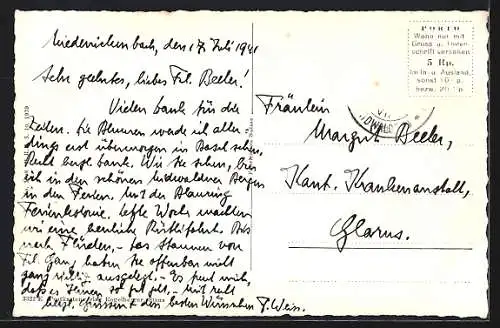 Niederrickenbach, den 17. Juli 1941
Sehr geehrtes, liebes Frl. Beeler!
Vielen Dank für die
Zeilen. Die Blumen werde ich aller
dings erst übermorgen in Basel sehen,
Recht herzl. Dank. Wie Sie sehen, bin
ich in den schönen Nidwaldner Bergen
in den Ferien. Mit der Blauring
Ferienkolonie. Letzte Woche machten
wir eine herrliche Rütlifahrt. Bis
nach Flüelen, - das Staunen von
Frl. Gang haben Sie offenbar nicht
ganz richtig ausgelegt. - Es freut mich,
dass es Ihnen so gut geht, - mit recht
herzl. Grüssen & den besten Wünschen F. Weiss.
PORTO
Wenn nur mit
Gruss u. Unter-
schrift versehen
5 Rp.
im In- u. Ausland,
sonst 10 Rp.
bezw. 20 Rp.
Fräulein
Margrit Beeler,
Kant. Krankenanstalt,
Glarus.